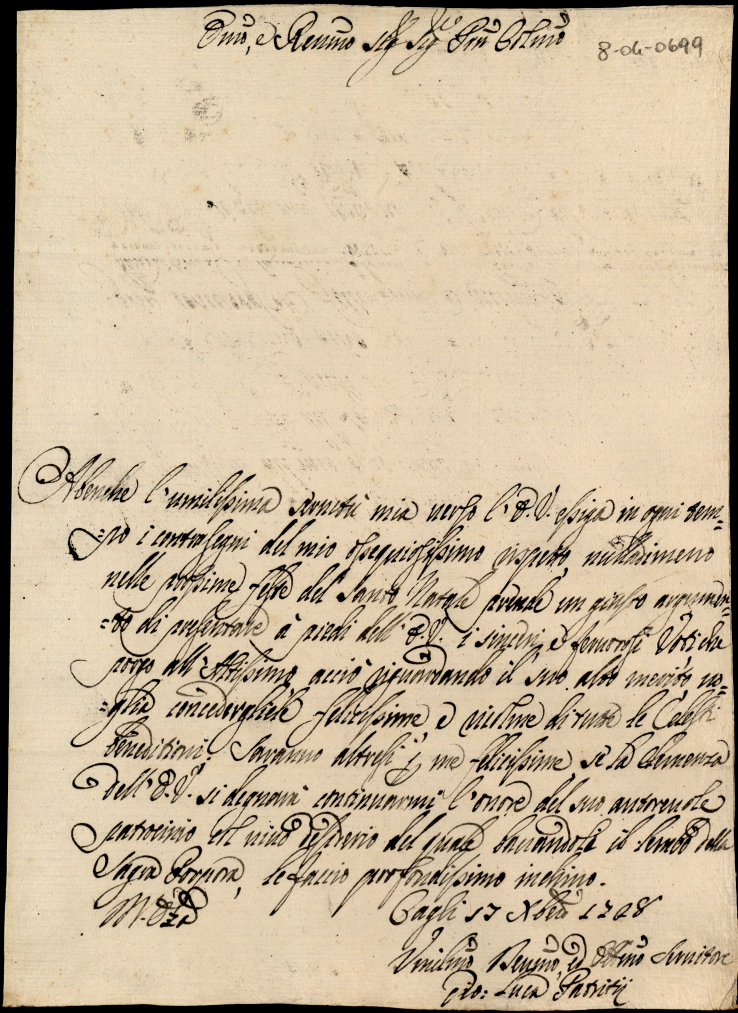 Emo, e Revmo Sig Sig Prn Colmo
8-06-0699
Abenche l'umilissima servitù mia verso l'E.V. essiga in ogni tem-
=po i contrasegni del mio ossequiosissimo rispetto, nulladimeno
nelle prossime feste del Santo Natale prende un giusto argumen-
=to di presentare à piedi dell'E.V. i sinceri, e fervorosi Voti che
porgo all'Altissimo acciò riguardando il suo alto merito, vo-
=glia concedergliele felicissime e ricolme di tutte le Celesti
beneditioni; Saranno altresi p me felicissime se la Clemenza
dell'E.V. si degnarà continuarmi l'onore del suo autorevole
patrocinio col vivo desiderio del quale baciandole il lembo della
Sagra Porpora, le faccio profondissimo inchino.
Cagli 17 Xbre 1728
Umilmo Devmo, ed Obbmo Servitore
Gio: Luca Patritij